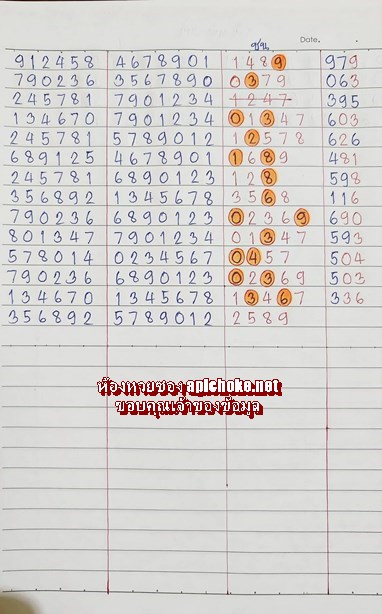 ชน Date.
912458 4678901 1489 979
790236 3567890 0379 063
245781 7901234 1247 395
134670 7901234 01347 603
245781 5789012 12578 626
689125 4678901 1689 481
245781 6890123 128 598
356892 1345678 3568 116
790236 6890123 02369 690
801347 7901234 01347 593
578014 0234567 0457 504
790236 6890123 02369 503
134670 1345678 13467 336
356892 5789012 2589
ห้องหวยซอง apichoke.net
ขอบคุณเจ้าของข้อมูล